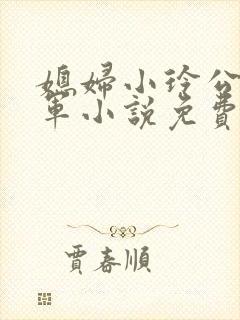 媳婦小玲公
軍小說免費
賈春順